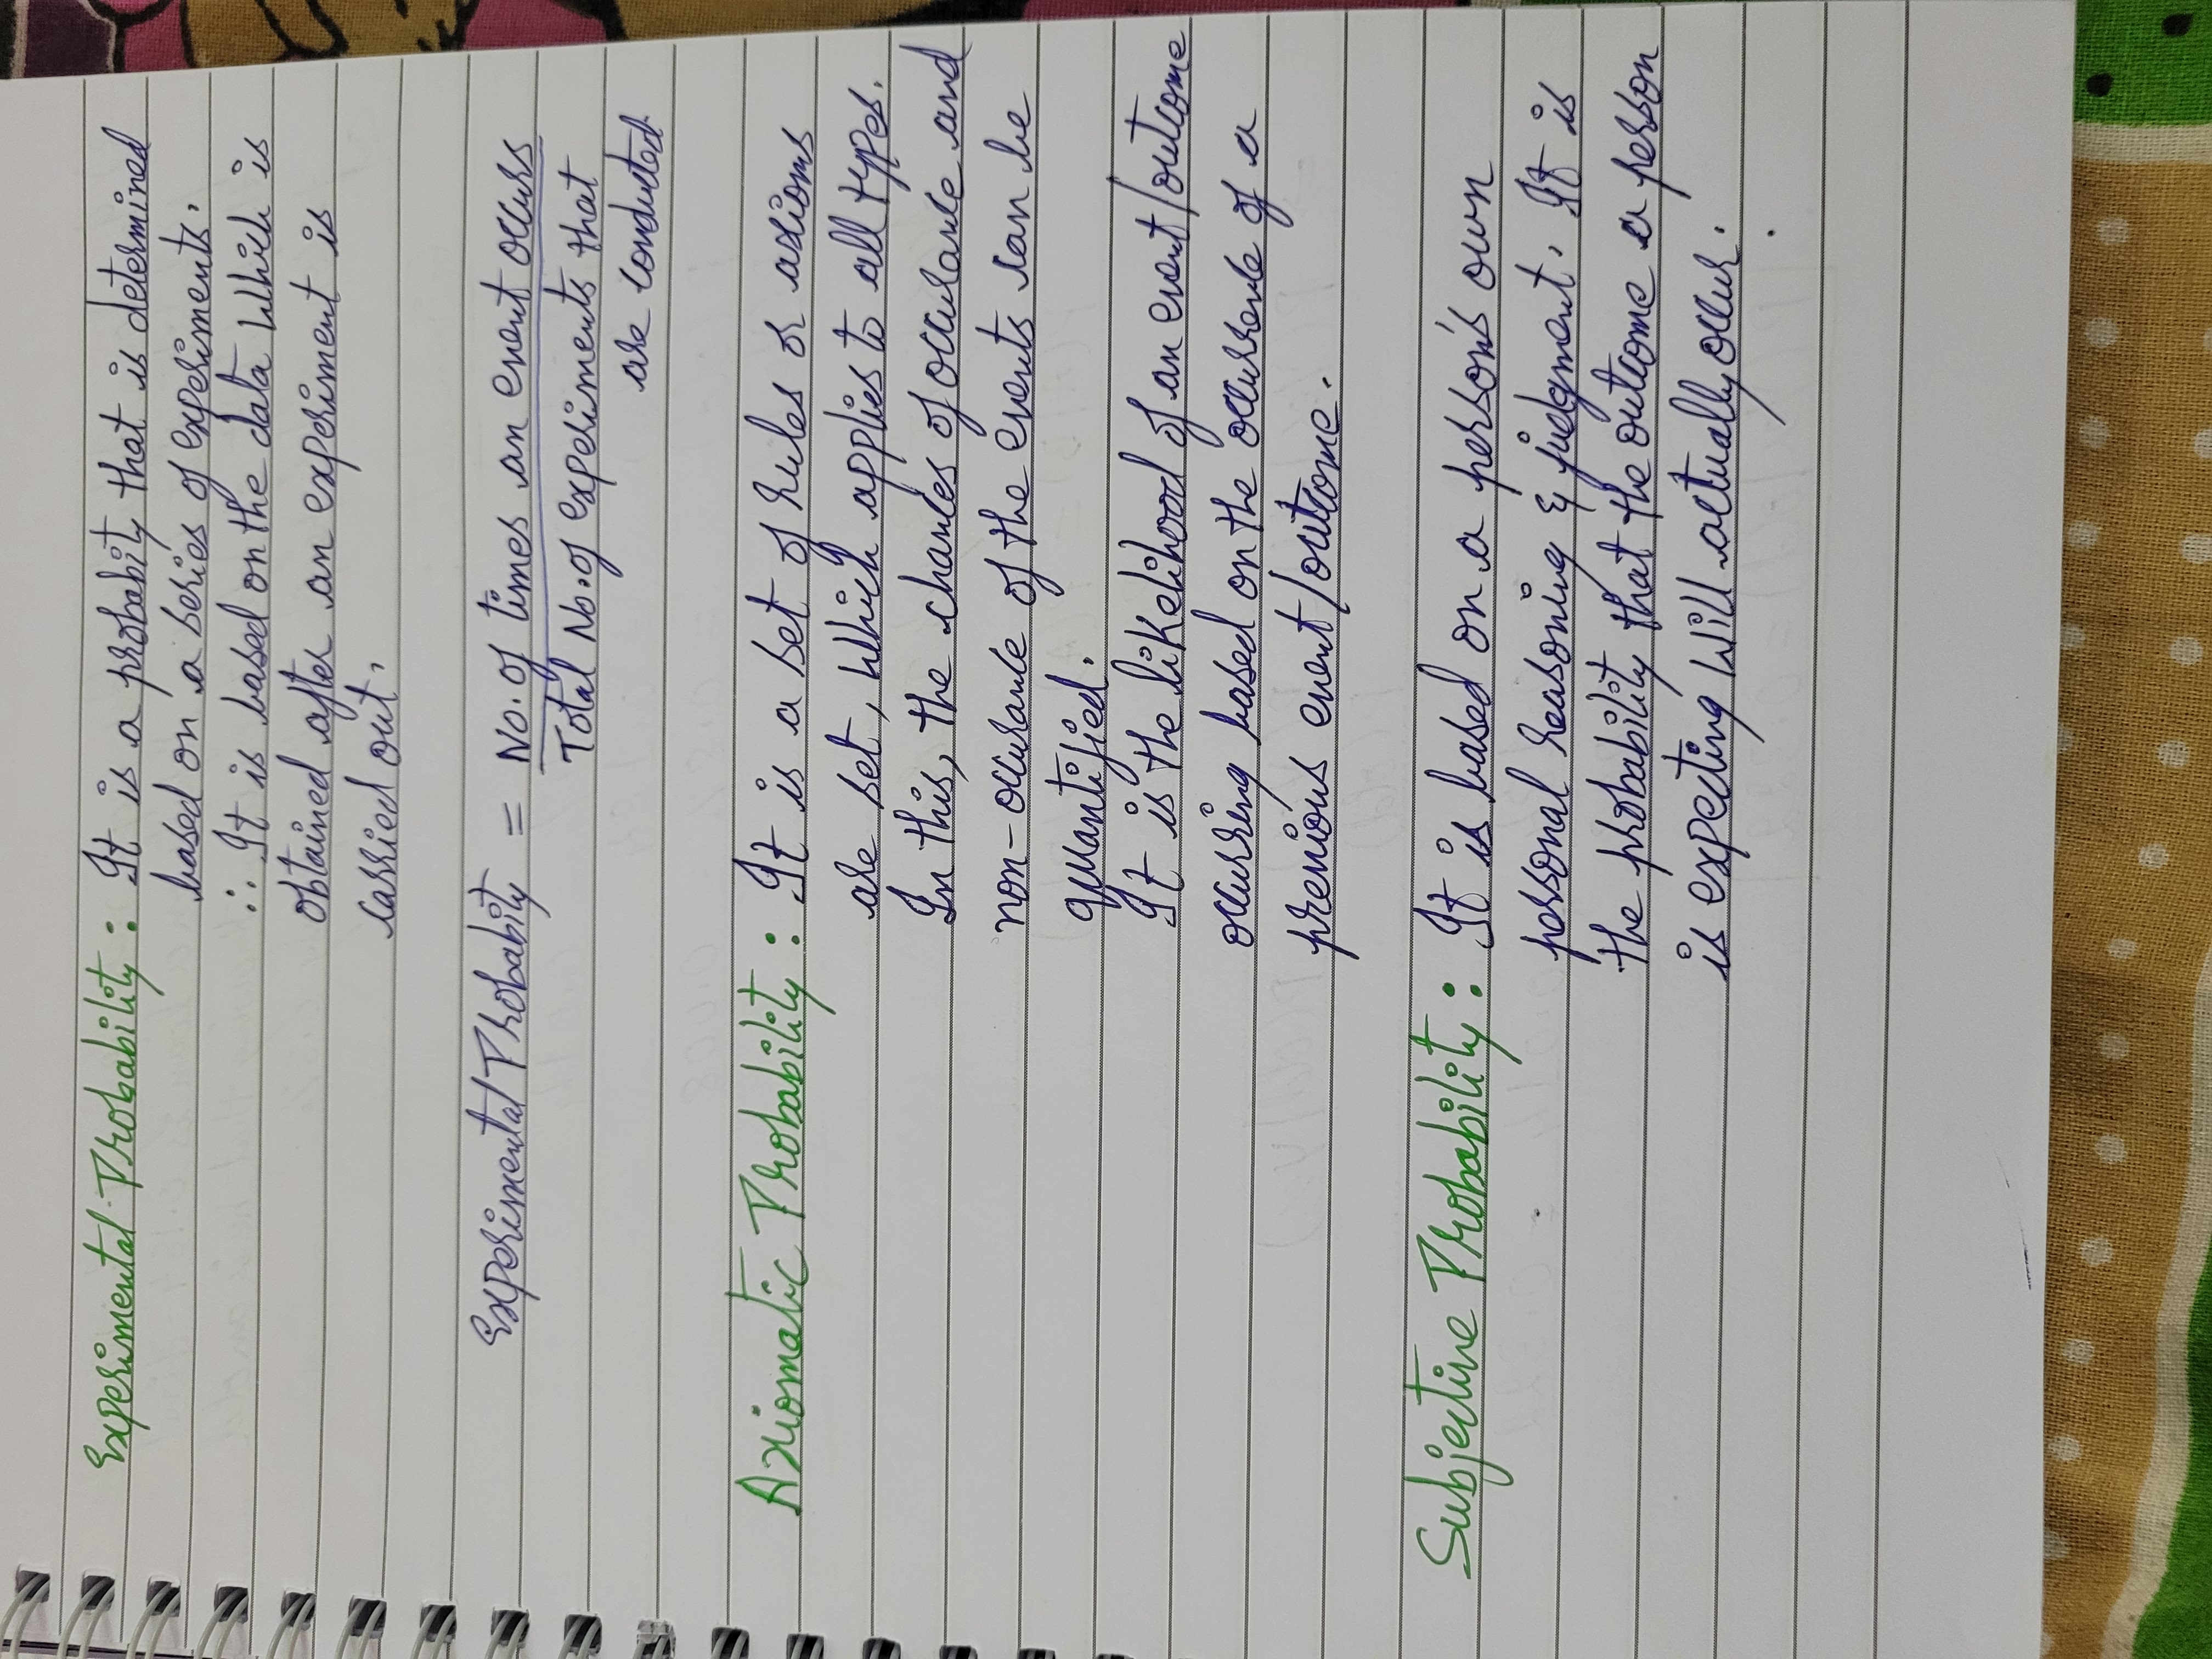 Experimental Probability : It is a probabity that is determined
based on a series of experiments.
∴ It is based on the data which is
obtained after an experiment is
carried out.
Experimental Probabity = No. of times an event occurs
Total No. of experiments that
are conducted
Axiomatic Probability : It is a set of rules or axioms
are set, which applies to all types.
In this, the chances of occurance and
non-occurance of the events can be
quantified.
It is the likelihood of an event/outcome
occurring based on the occurrence of a
previous event/outcome.
Subjective Probability : It is based on a person's own
personal reasoning & judgment. It is
the probability that the outcome a person
is expecting will actually occur.